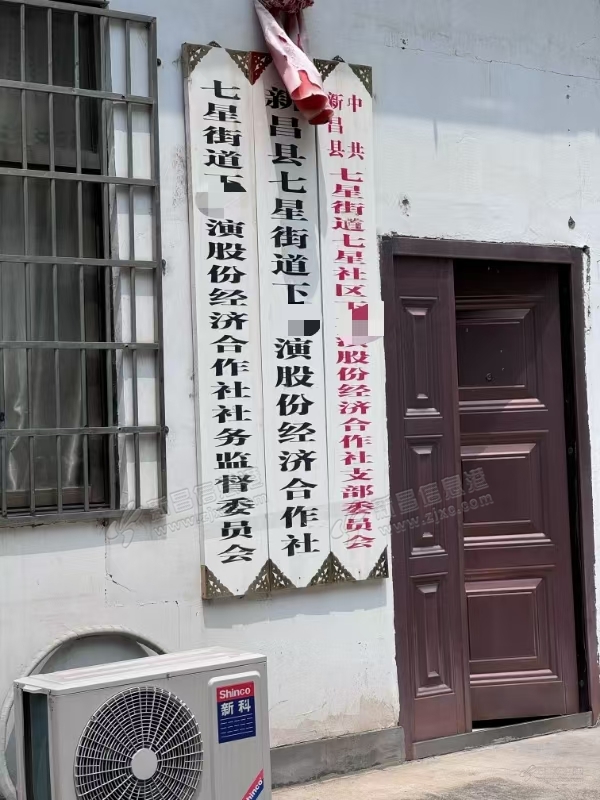 中共
新昌县
七星街道七星社区下
演股份经济合作社支部委员会
新昌县七星街道下
演股份经济合作社
七星街道下
演股份经济合作社社务监督委员会
Shinco
新科
Shinco
新昌信息港
www.zjxc.com